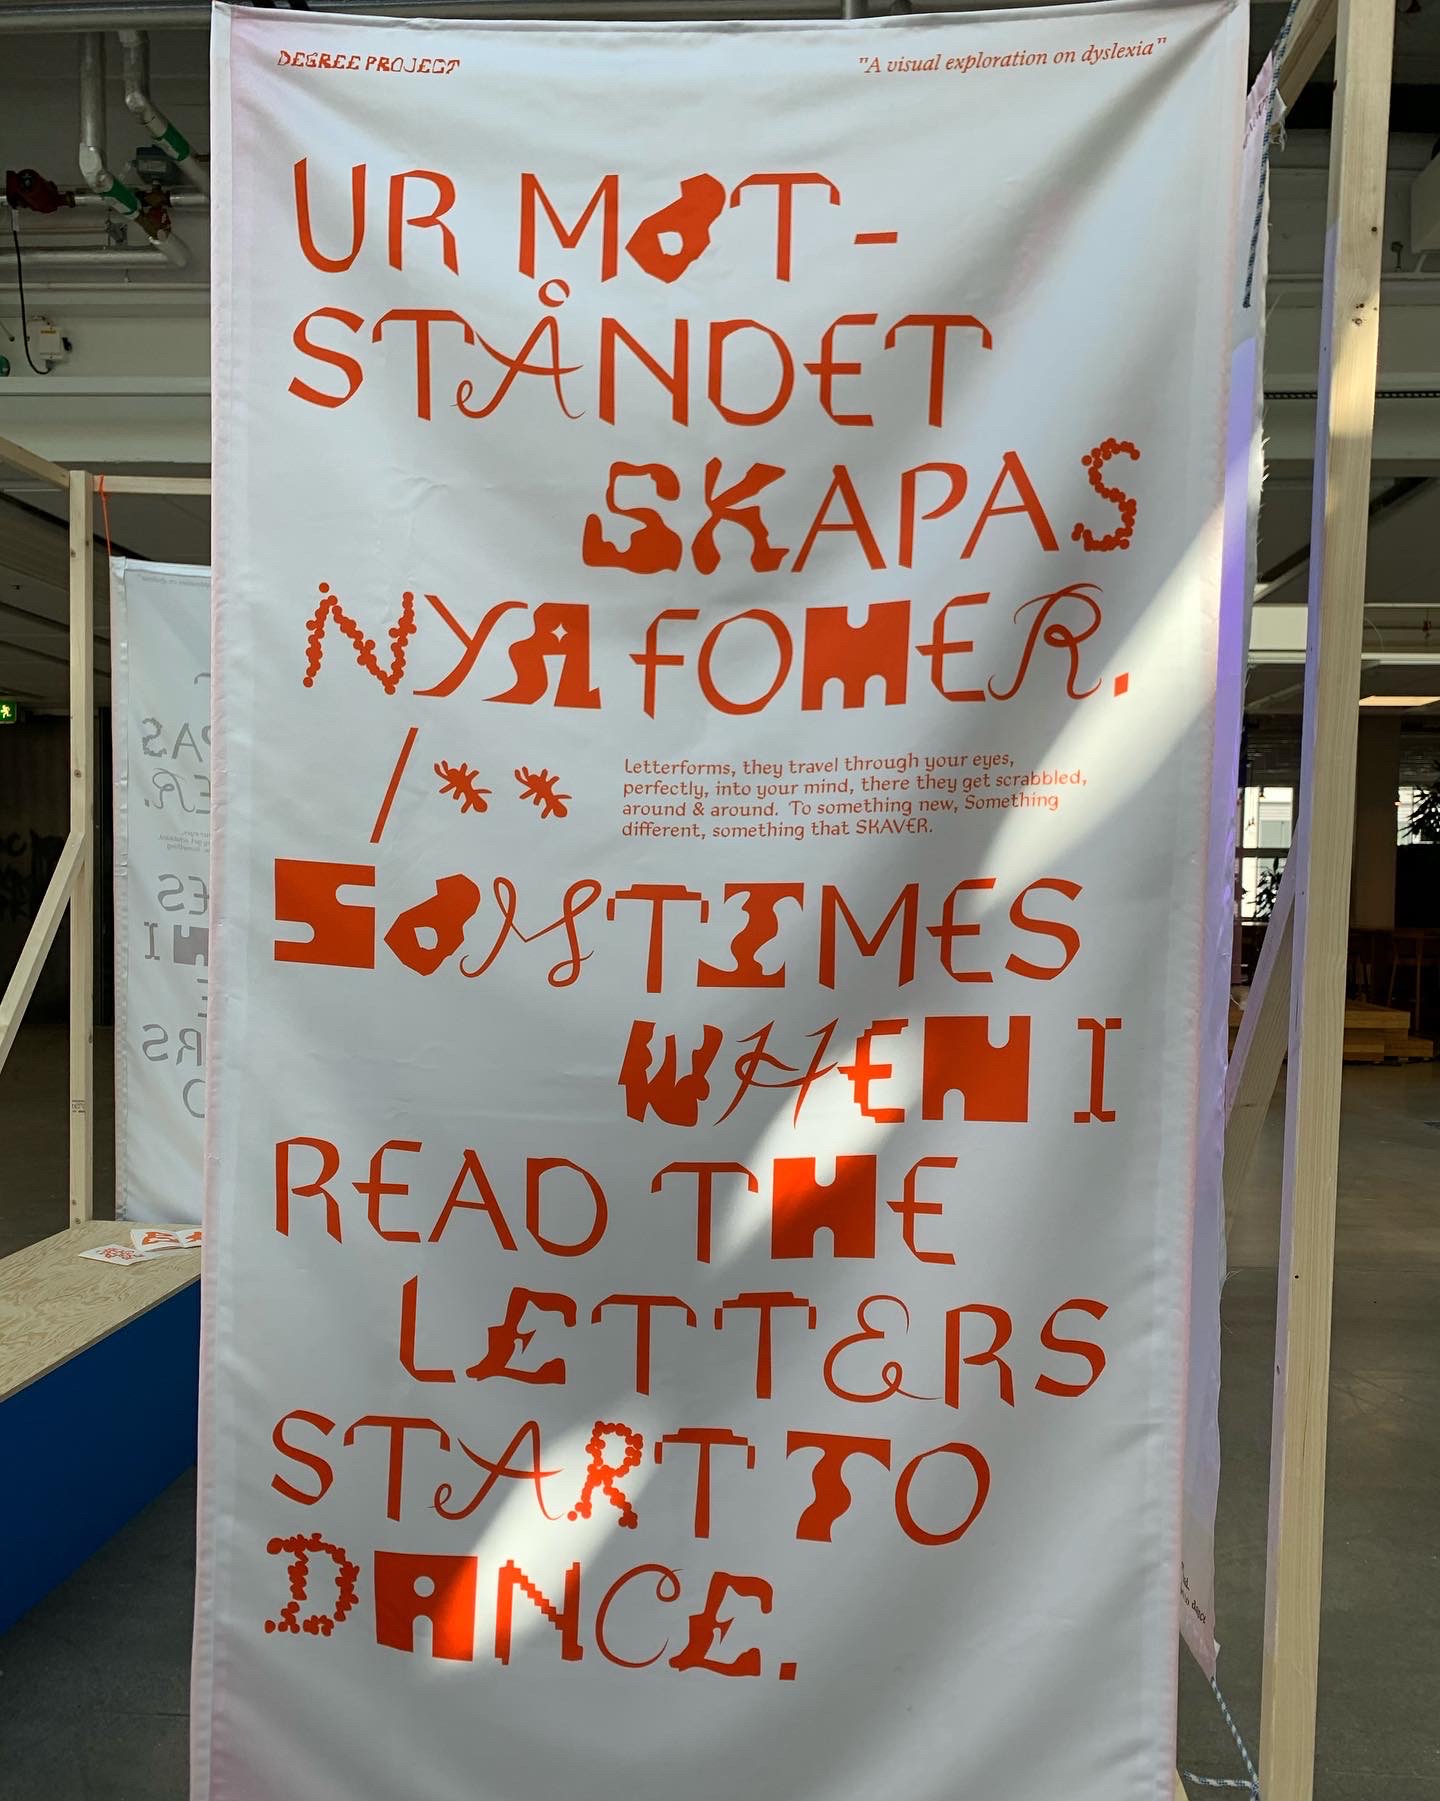 DEGREE PROJECT
"A visual exploration on dyslexia"
UR MOT-
STÅNDET
SKAPAS
NYA FOMER.
/**
Letterforms, they travel through your eyes,
perfectly, into your mind, there they get scrabbled,
around & around. To something new, Something
different, something that SKAVER.
SOMTIMES
WHEN I
READ THE
LETTERS
START TO
DANCE.